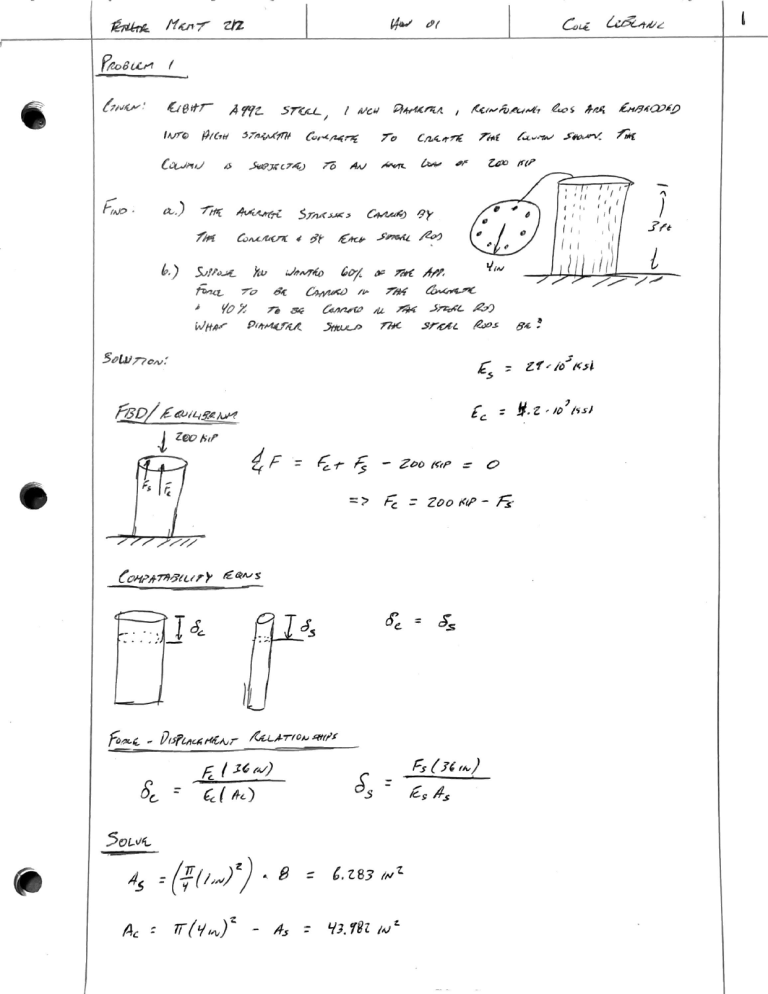 MEMT 212 HW 01 COLE LEBLANC 1
PROBLEM 1
GIVEN: EIGHT A992 STEEL, 1 INCH DIAMETER, REINFORCING RODS ARE EMBEDDED
INTO HIGH STRENGTH CONCRETE TO CREATE THE COLUMN SHOWN. THE
COLUMN IS SUBJECTED TO AN LOAD OF 200 KIP
FIND. a.) THE AVERAGE STRESSES CARRIED BY
THE CONCRETE & BY EACH STEEL ROD
3 ft
4 IN
b.) SUPPOSE YOU WANTED 60% OF THE APP.
FORCE TO BE CARRIED IN THE CONCRETE
& 40% TO BE CARRIED IN THE STEEL ROD
WHAT DIAMETER SHOULD THE STEEL RODS BE?
SOLUTION:
E_s = 29·10³ KSI
FBD/EQUILIBRIUM
E_c = 4.2·10³ KSI
200 KIP
F_s F_c
F = F_c + F_s - 200 KIP = 0
=> F_c = 200 KIP - F_s
COMPATABILITY EQNS
δ_c δ_s δ_c = δ_s
FORCE - DISPLACEMENT RELATIONSHIPS
δ_c = F_c(36 IN) / E_c(A_c) δ_s = F_s(36 IN) / E_s A_s
SOLVE
A_s = (π/4 (1 IN)²) · 8 = 6.283 IN²
A_c = π(4 IN)² - A_s = 43.982 IN²